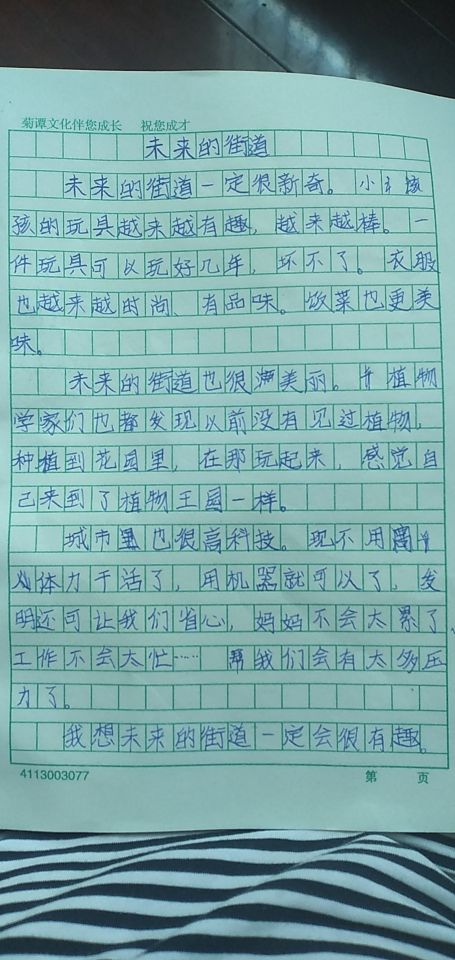 菊谭文化伴您成长 祝您成才
未来的街道
未来的街道一定很新奇。小孩
孩的玩具越来越有趣，越来越棒。一
件玩具可以玩好几年，坏不了。衣服
也越来越时尚、有品味。饭菜也更美
味。
未来的街道也很美丽。植物
学家们也都发现以前没有见过植物，
种植到花园里，在那玩起来，感觉自
己来到了植物王园一样。
城市里也很高科技。现不用
体力干活了，用机器就可以了，发
明还可让我们省心，妈妈不会太累了
工作不会太忙…… 我们会有太多压
力了。
我想未来的街道一定会很有趣。
4113003077 第 页